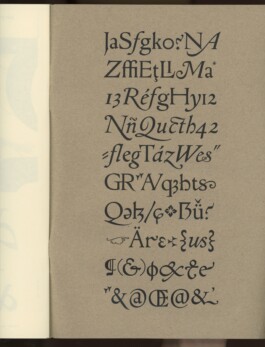 JaSfgko?NA
ZffiEţLlMa
13RéfgHy12
NñQucth42
flegTázWes"
GR"A/qꜩbts
Qəꜩ/ç❖ßǚ?
☞Är {us}
¶(&)ϕ
"&@Œ@&